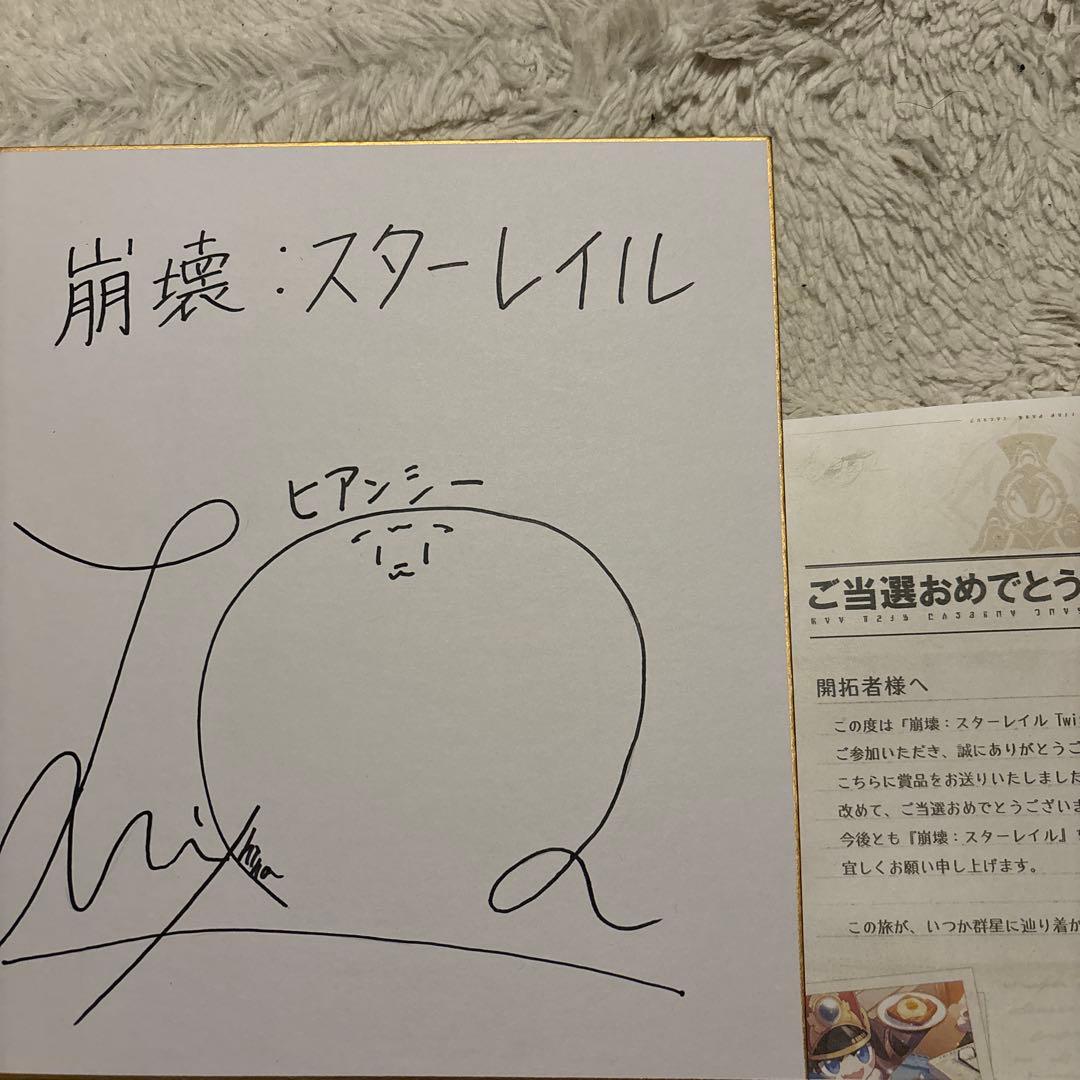 崩壊：スターレイル
ヒアンシー
ご当選おめでとう
開拓者様へ
この度は「崩壊：スターレイル Twi
ご参加いただき、誠にありがとうご
こちらに賞品をお送りいたしました
改めて、ご当選おめでとうございま
今後とも『崩壊：スターレイル』を
宜しくお願い申し上げます。
この旅が、いつか群星に辿り着か